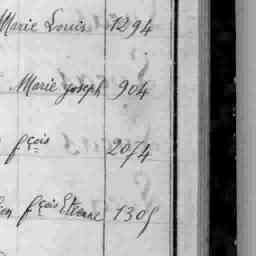 Marie Louis 1294
Marie Joseph 904
fçois 2074
fçois Etienne 1305